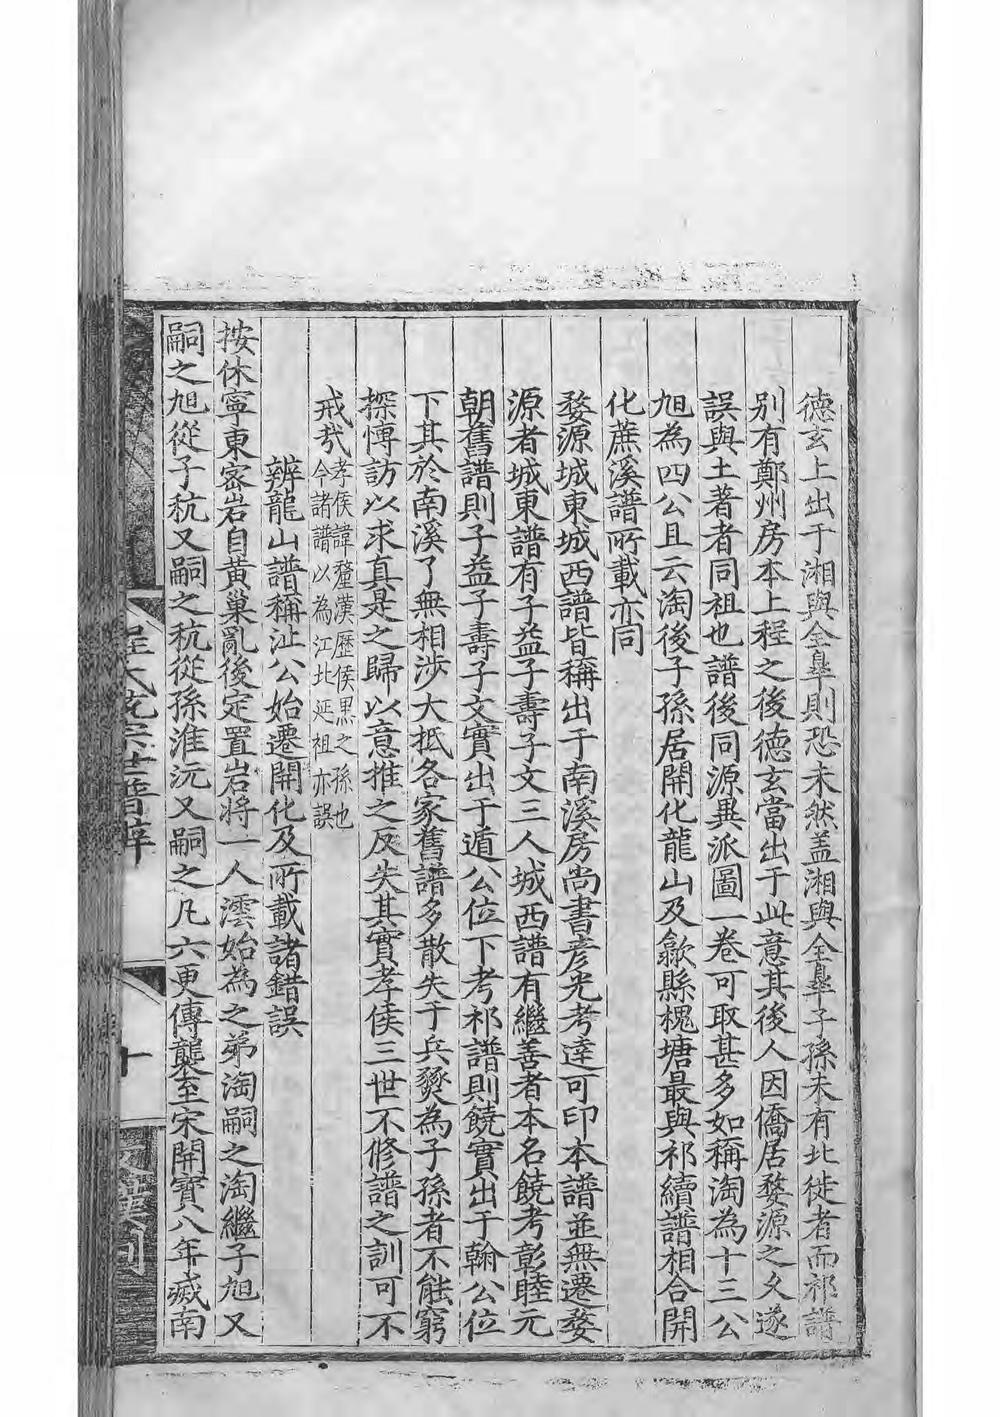 德玄上出于湘與全臯則恐未然盖湘與全臯子孫未有北徙者而祁譜
别有鄭州房本上程之後德玄當出于此意其後人因僑居婺源之久遂
誤與土著者同祖也譜後同源異派圖一卷可取甚多如稱淘為十三公
旭為四公且云淘後子孫居開化龍山及歙縣槐塘最與祁續譜相合開
化蔗溪譜所載亦同
婺源城東城西譜皆稱出于南溪房尚書彦光考逹可印本譜並無遷婺
源者城東譜有子益子壽子文三人城西譜有繼善者本名饒考彰睦元
朝舊譜則子益子壽子文實出于遁公位下考祁譜則饒實出于翰公位
下其於南溪了無相涉大抵各家舊譜多散失于兵燹為子孫者不能窮
探愽訪以求真是之歸以意推之反失其實孝侯三世不修譜之訓可不
戒㦲孝侯諱釐漢歷侯黒之孫也
今諸譜以為江北延祖亦誤
辨龍山譜稱沚公始遷開化及所載諸錯誤
按休寧東宻岩自黄巢亂後定置岩将一人澐始為之弟淘嗣之淘繼子旭又
嗣之旭從子秔又嗣之秔從孫淮沅又嗣之凡六更傳襲至宋開寳八年㓕南
程氏統宗世譜辨
十